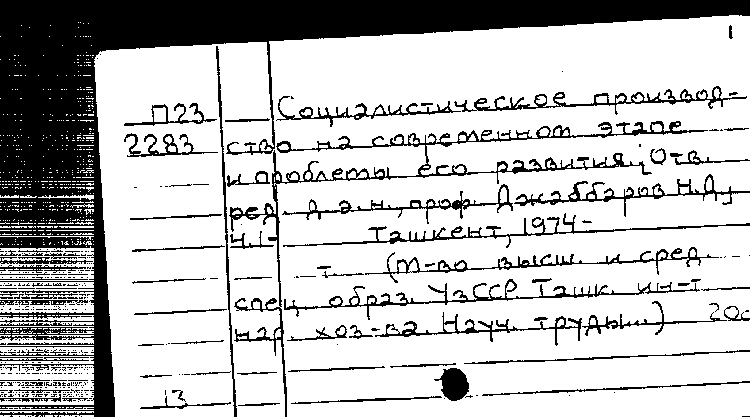 1
П23 Социалистическое производ-
2283 ство на современном этапе
и проблемы его развития. Отв.
ред. д.э.н., проф. Джаббаров Н.Д.
Ч.1- Ташкент, 1974-
т. (М-во высш. и сред.
спец. образ. УзССР Ташк. ин-т
нар. хоз-ва. Науч. труды...) 20с
13